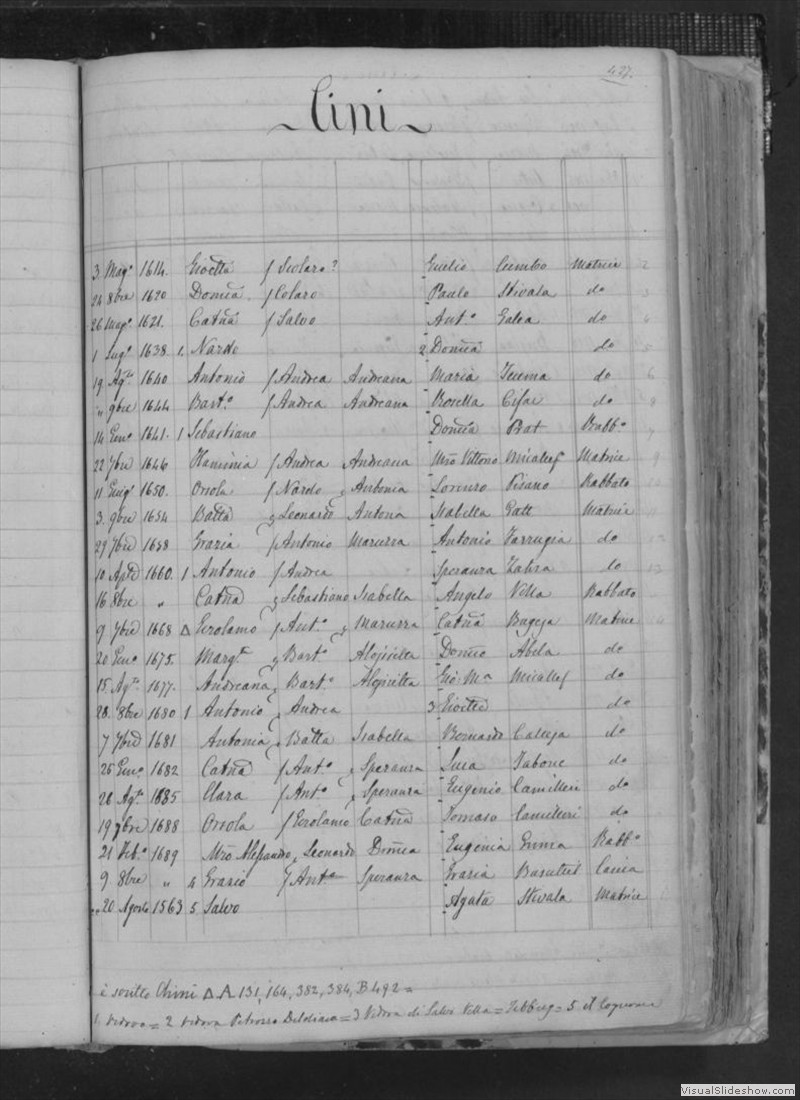 437.
Cini
3. Mag° 1614. Gioetta f Scolaro? Giulio Cumbo Matrice 2
24 8bre 1620 Domca f Colaro Paulo Stivala do 3
26 Mag° 1621. Catna f Salvo Ant.° Galea do 4
1 Lug° 1638. 1. Nardo 2 Domca do 5
19 Ag° 1640 Antonio f Andrea Andreana Maria do 6
" 9bre 1644 Bart.° f Andrea Andreana Rosella Cifai do 8
14 Gen° 1641. 1 Sebastiano Domca Rabb.° 7
22 7bre 1646 Flaminia f Andrea Andreana Mro Vittorio Micallef Matrice 9
11 1650. Orsola f Nardo Antonia Lorenzo Pisano Rabbato 10
3. 9bre 1654 Batta Leonardo Antona Isabella Gatt Matrice 11
29 7bre 1658 Grazia f Antonio Maruzza Antonio Farrugia do 12
10 Aple 1660. 1 Antonio f Andrea Speranza Zahra do 13
16 8bre " Catna Sebastiano Isabella Angelo Villa Rabbato
9 7bre 1668 Δ Gerolamo f Ant.° Maruzza Catna Bugeja Matrice
20 Gen° 1675. Margta Bart° Alojisetta Domco Abela do
15 Ag° 1677. Andreana Bart.° Alojisetta Gio: Ma Micallef do
28. 8bre 1680 1 Antonio Andrea 3 Gioetta do
7 7bre 1681 Antonia Batta Isabella Bernardo Calleja do
25 Gen° 1682 Catna f Ant.° Speranza Luca Tabone do
28 Ag° 1685 Clara f Ant.° Speranza Eugenio Camilleri do
19 9bre 1688 Orsola f Gerolamo Catna Tomaso Camilleri do
21 Feb.° 1689 Mro Alessandro Leonardo Domca Eugenia Emma Rabb.°
9 8bre " 4 Grazio f Ant° Speranza Grazia Busuttil
20 Agosto 1563 5 Salvo Agata Stivala Matrice
è scritto Chini Δ A 131, 164, 382, 384, B 492 =
1. Vedovo = 2 vedova = 3 Vedova di Salvo Villa = Zebbug = 5. il Cognome
VisualSlideshow.com